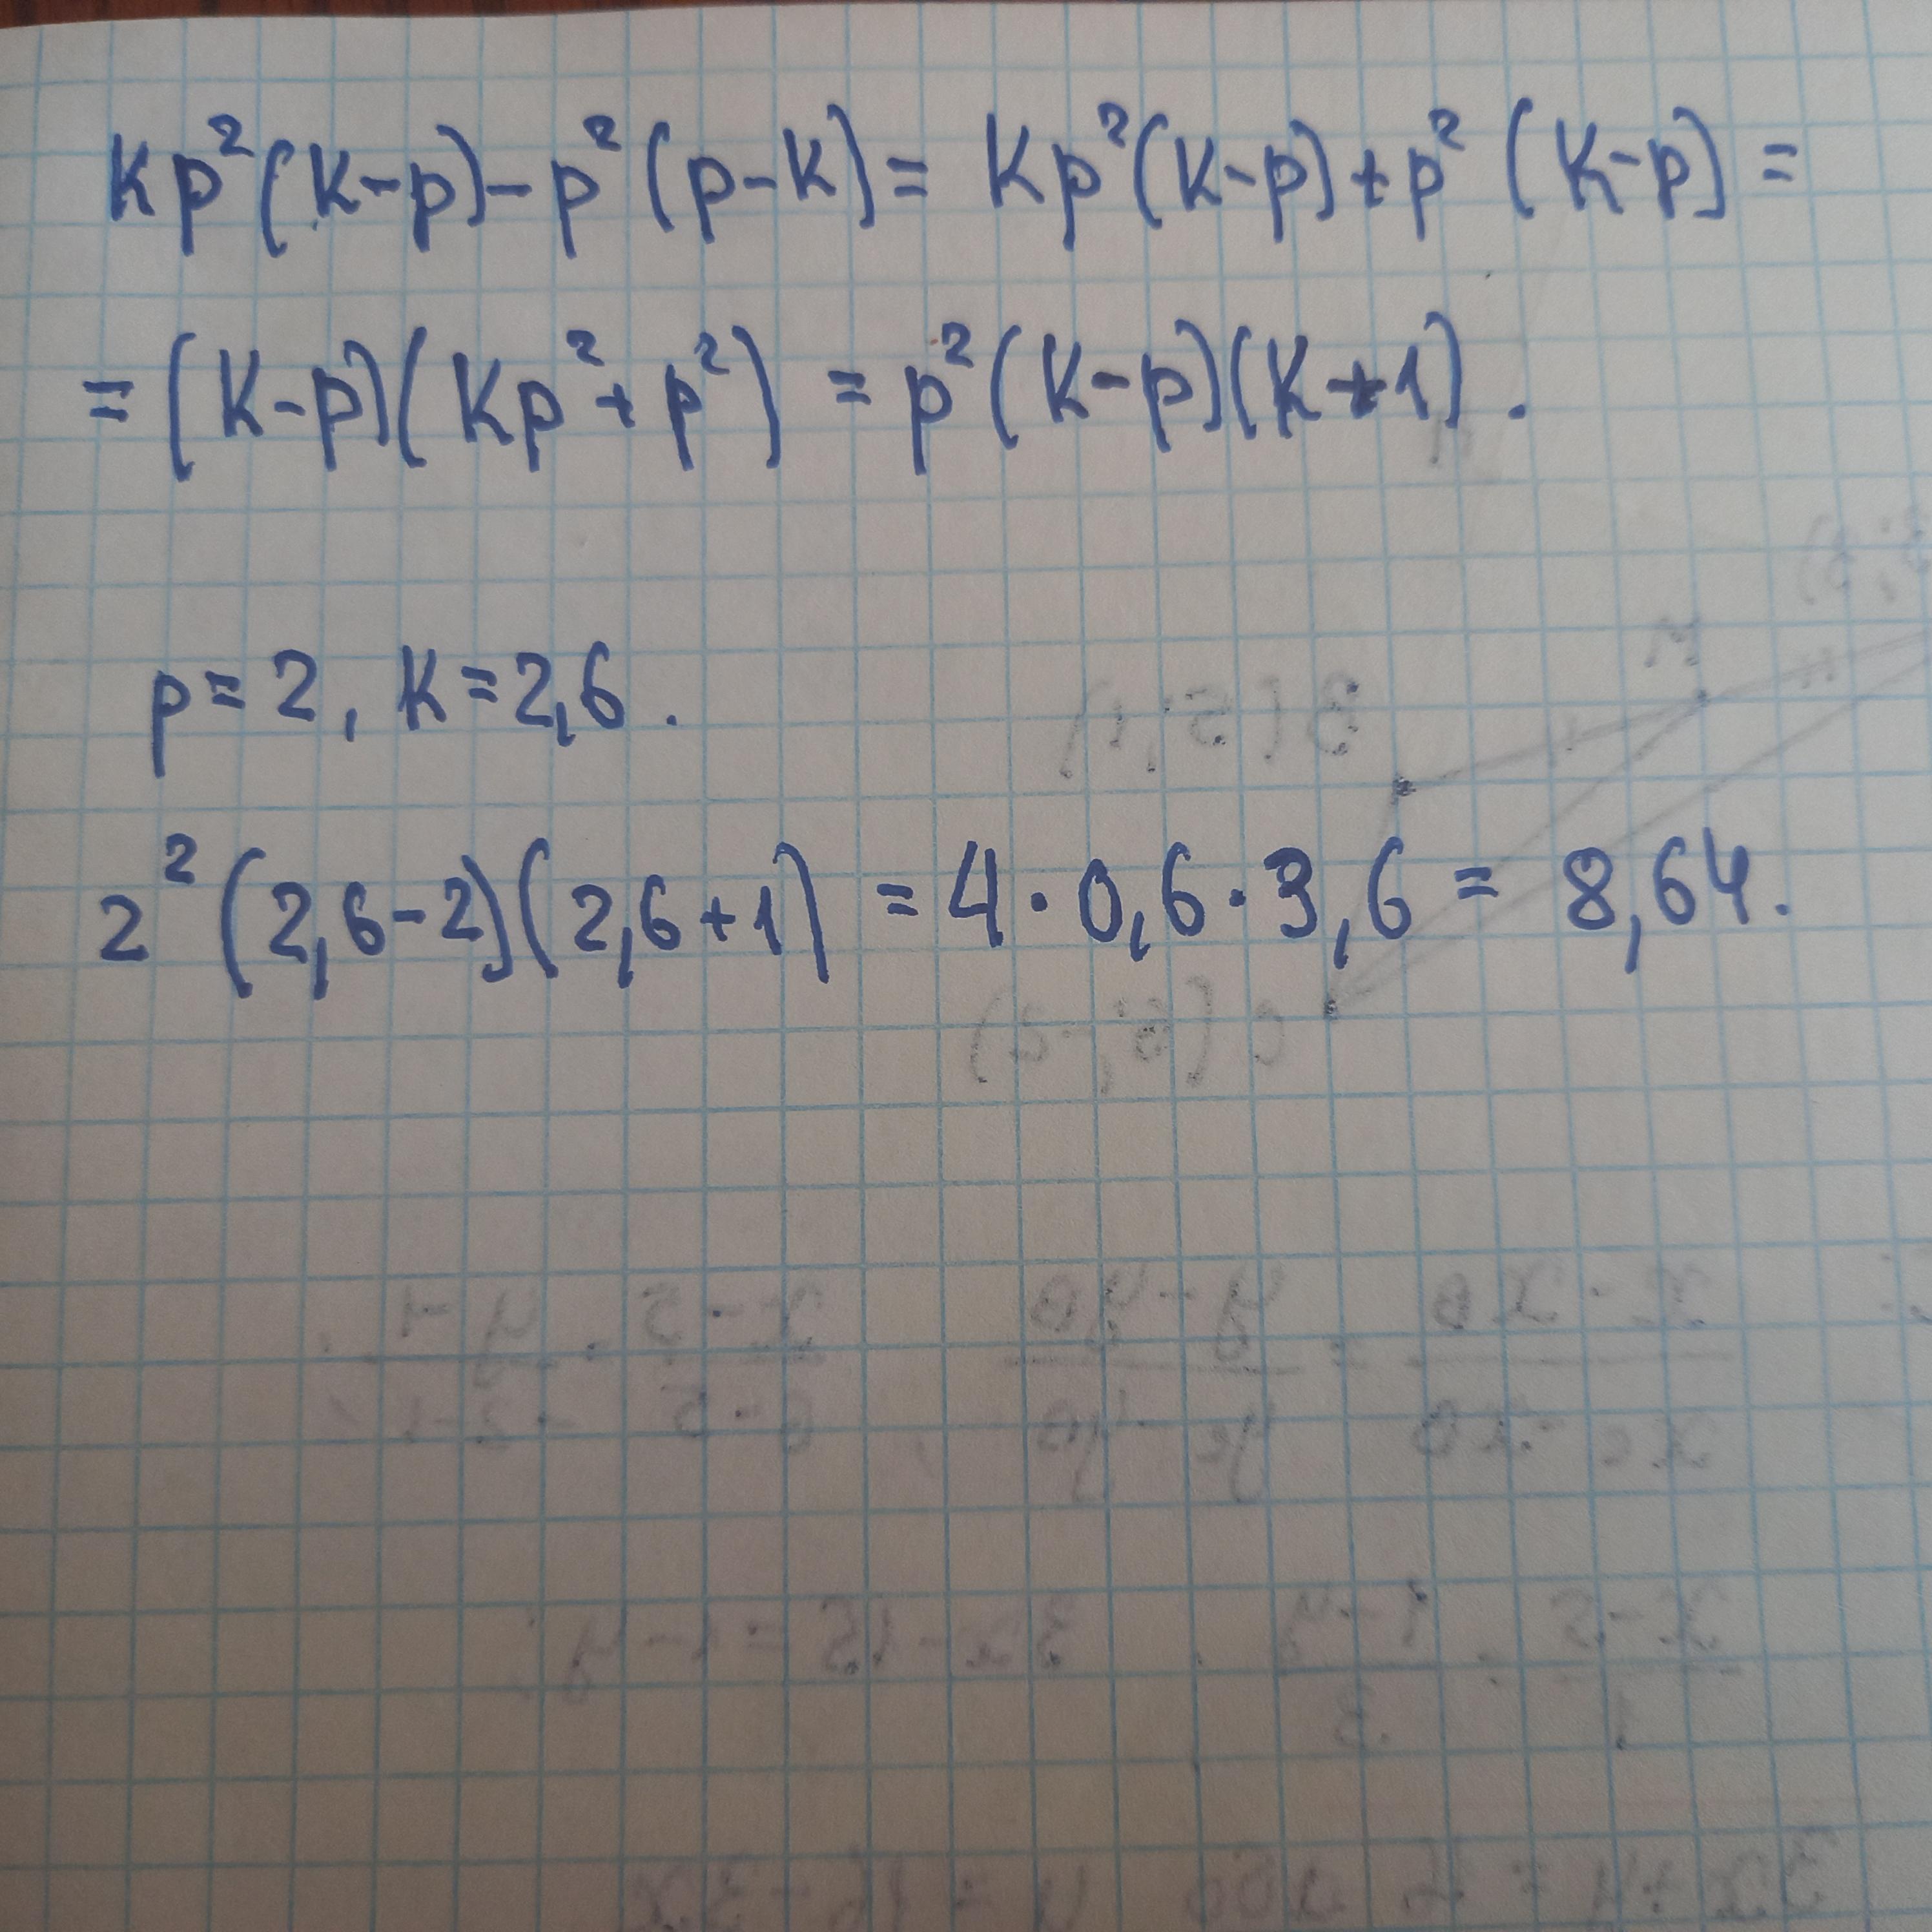 kp²(k-p)-p²(p-k)= kp²(k-p)+p²(k-p)=
=(k-p)(kp²+p²) = p²(k-p)(k+1).
p=2, k=2,6.
2²(2,6-2)(2,6+1) = 4·0,6·3,6 = 8,64.